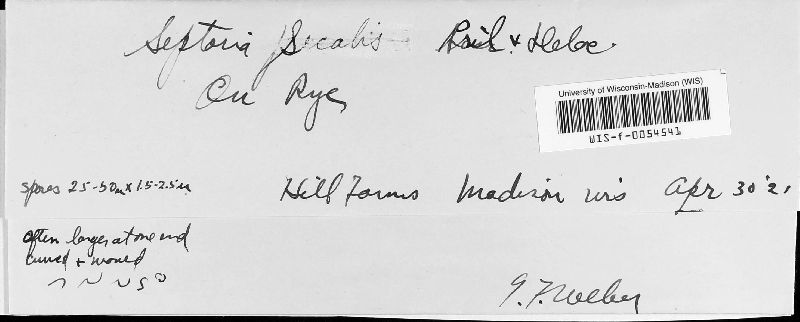 Septoria Secalis Pril. & Delac.
On Rye
University of Wisconsin-Madison (WIS)
WIS-f-0054541
spores 25-50µ x 1.5-2.5µ
Hill Farms Madison Wis Apr 30 '21
often larger at one end
curved +
G. F. Weber